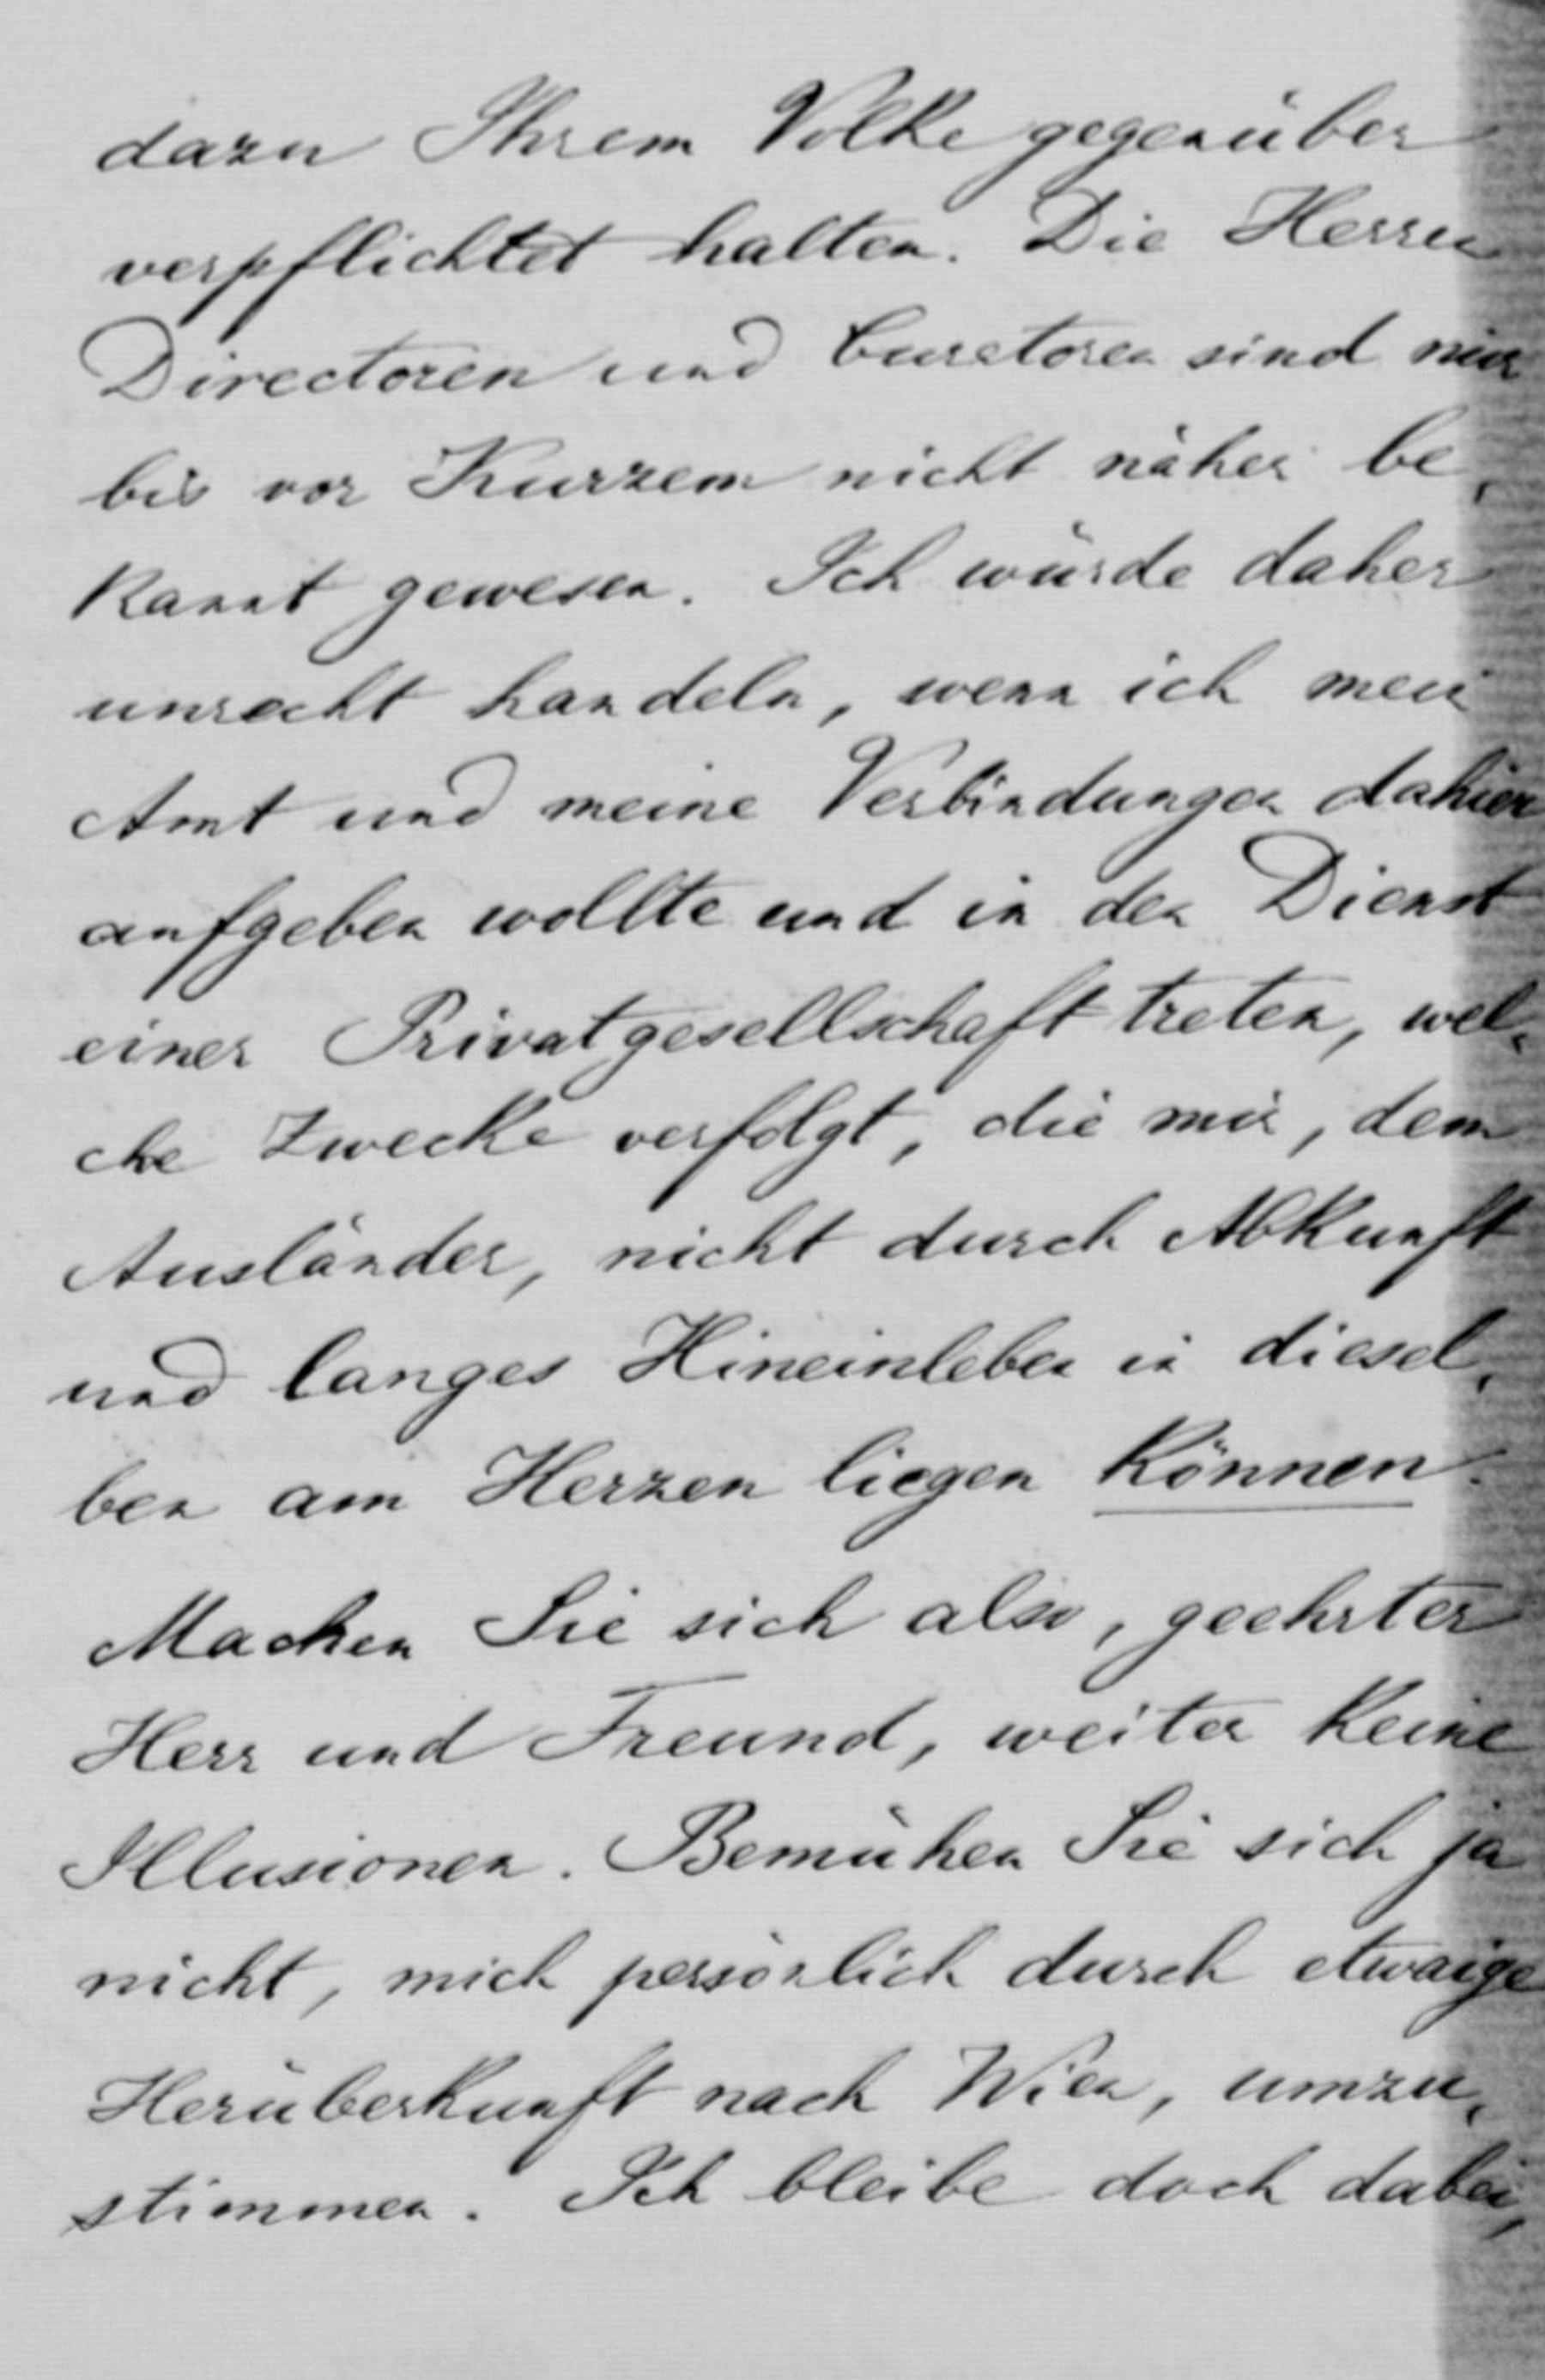 dazu Ihrem Volke gegenüber
verpflichtet halten. Die Herren
Directoren und Curatoren sind mir
bis vor Kurzem nicht näher be-
kannt gewesen. Ich würde daher
unrecht handeln, wenn ich mein
Amt und meine Verbindungen dahier
aufgeben wollte und in den Dienst
einer Privatgesellschaft treten, wel-
che Zwecke verfolgt, die mir, dem
Ausländer, nicht durch Abkunft
und langes Hineinleben in diesel-
ben am Herzen liegen können.
Machen Sie sich also, geehrter
Herr und Freund, weiter keine
Illusionen. Bemühen Sie sich ja
nicht, mich persönlich durch etwaige
Herüberkunft nach Wien, umzu-
stimmen. Ich bleibe doch dabei,